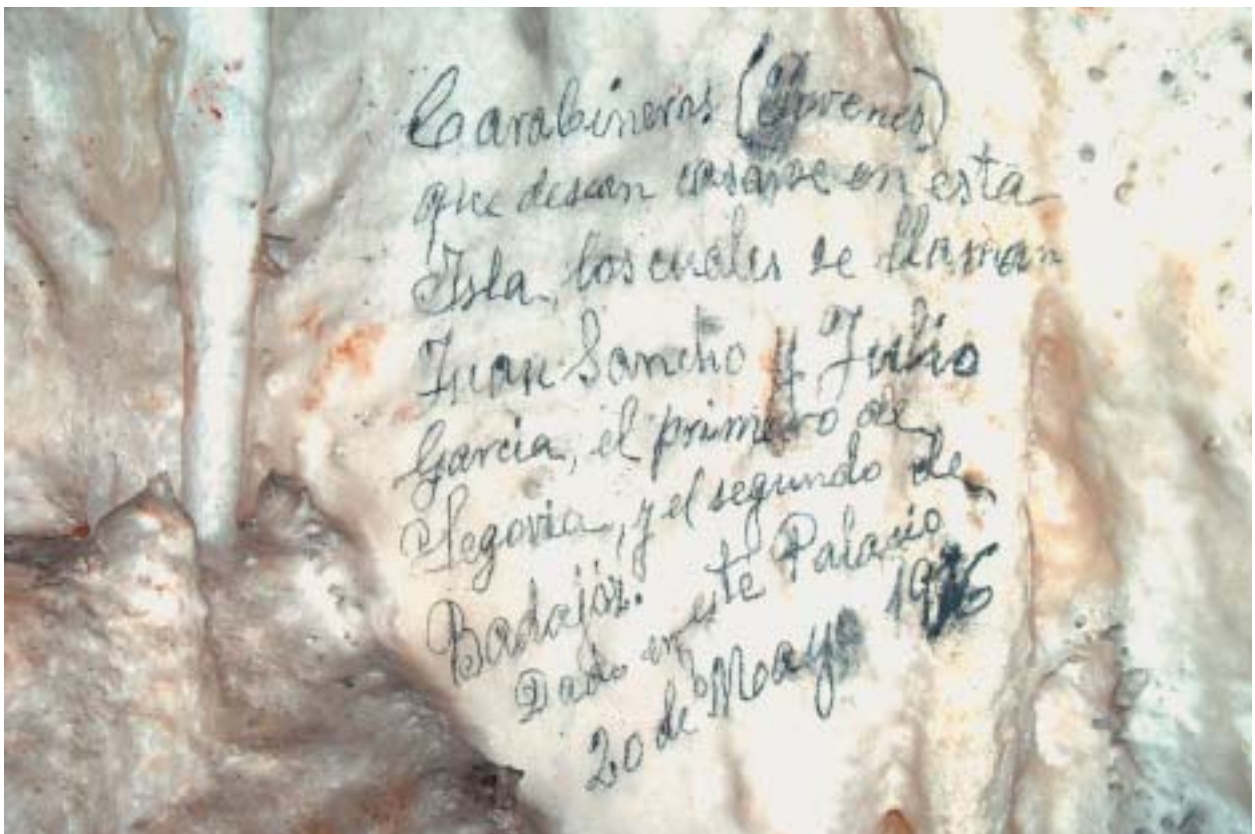 Carabineros (jovenes)
que desean casarse en esta
Isla, los cuales se llaman
Juan Sancho y Julio
Garcia, el primero de
Segovia, y el segundo de
Badajoz.
Dado en este Palacio
20 de Mayo